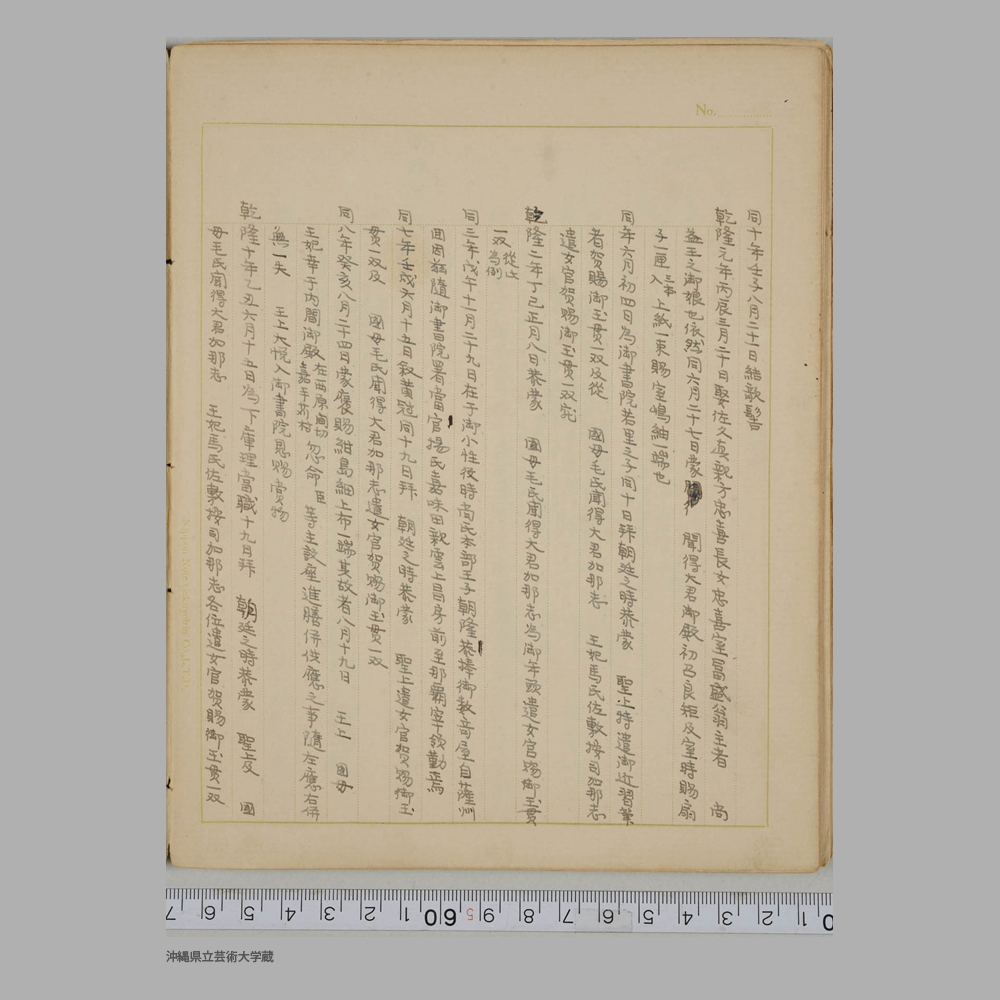 No.
同十年壬子八月二十一日結歌髻
乾隆元年丙辰三月二十日娶佐久真親方忠喜長女忠喜室冨盛翁主者 尚
益王之御娘也依然同六月二十七日蒙 聞得大君御殿初召良矩及室時賜扇
子一匣入三本上紙一束賜室嶋紬一端也
同年六月初四日為御書院若里之子同十日拝朝廷之時恭蒙 聖上特遣御近習筆
者賀賜御玉貫一双及從 國母毛氏聞得大君加那志 王妃馬氏佐敷按司加那志
遣女官賀賜御玉貫一双宛
乾隆二年丁巳正月八日恭蒙 國母毛氏聞得大君加那志為御年頭遣女官賜御玉貫
一双從此為例
同三年戊午十一月二十九日在于御小性役時尚氏本部王子朝隆恭捧御教奇屋自薩州
回因茲隨御書院署當官揚氏嘉味田親雲上昌房前至那覇宰領勤焉
同七年壬戌六月十五日敘黄冠同十九日拝 朝廷之時恭蒙 聖上遣女官賀賜御玉
貫一双及 國母毛氏聞得大君加那志遣女官賀賜御玉貫一双
同八年癸亥八月二十四日蒙褒賜紺島細上布一端其故者八月十九日 王上 國母
王妃幸于内間御殿在西原間切嘉手苅村忽命臣等主設座進膳併供應之事隨左應右併
無一失 王上大悦入御書院恩賜賞物
乾隆十年乙丑六月十五日為下庫理當職十九日拝 朝廷之時恭蒙 聖上及 國
母毛氏聞得大君加那志 王妃馬氏佐敷按司加那志各位遣女官賀賜御玉貫一双
沖縄県立芸術大学蔵